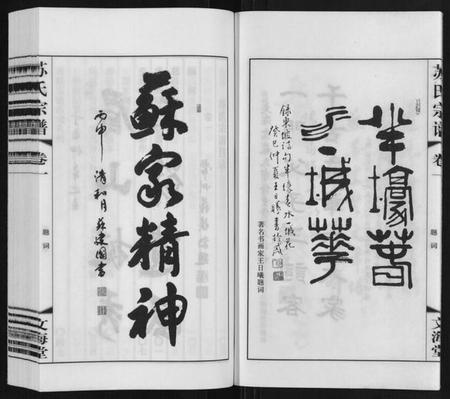 苏氏宗谱
卷
题词
文海堂
半壕春
水一城花
录东坡诗句半壕春水一城花
癸巳仲夏王日曦书
著名书画家王日曦题词
蘇家精神
丙申清和月苏建国书
苏氏宗谱
卷一
题词
文海堂